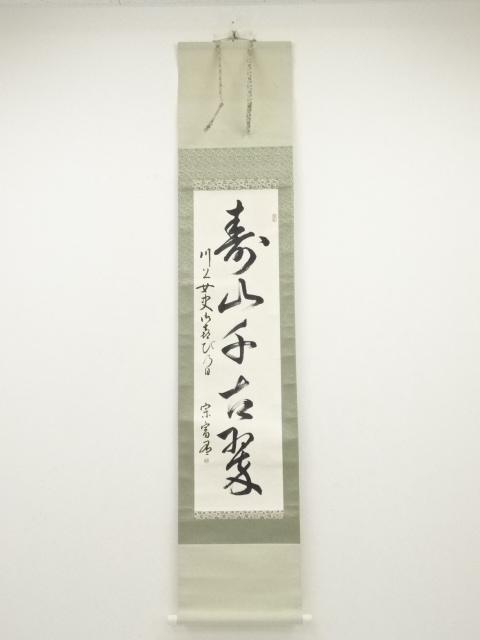 寿山千古翠
川上女史御喜びの日
宗富書